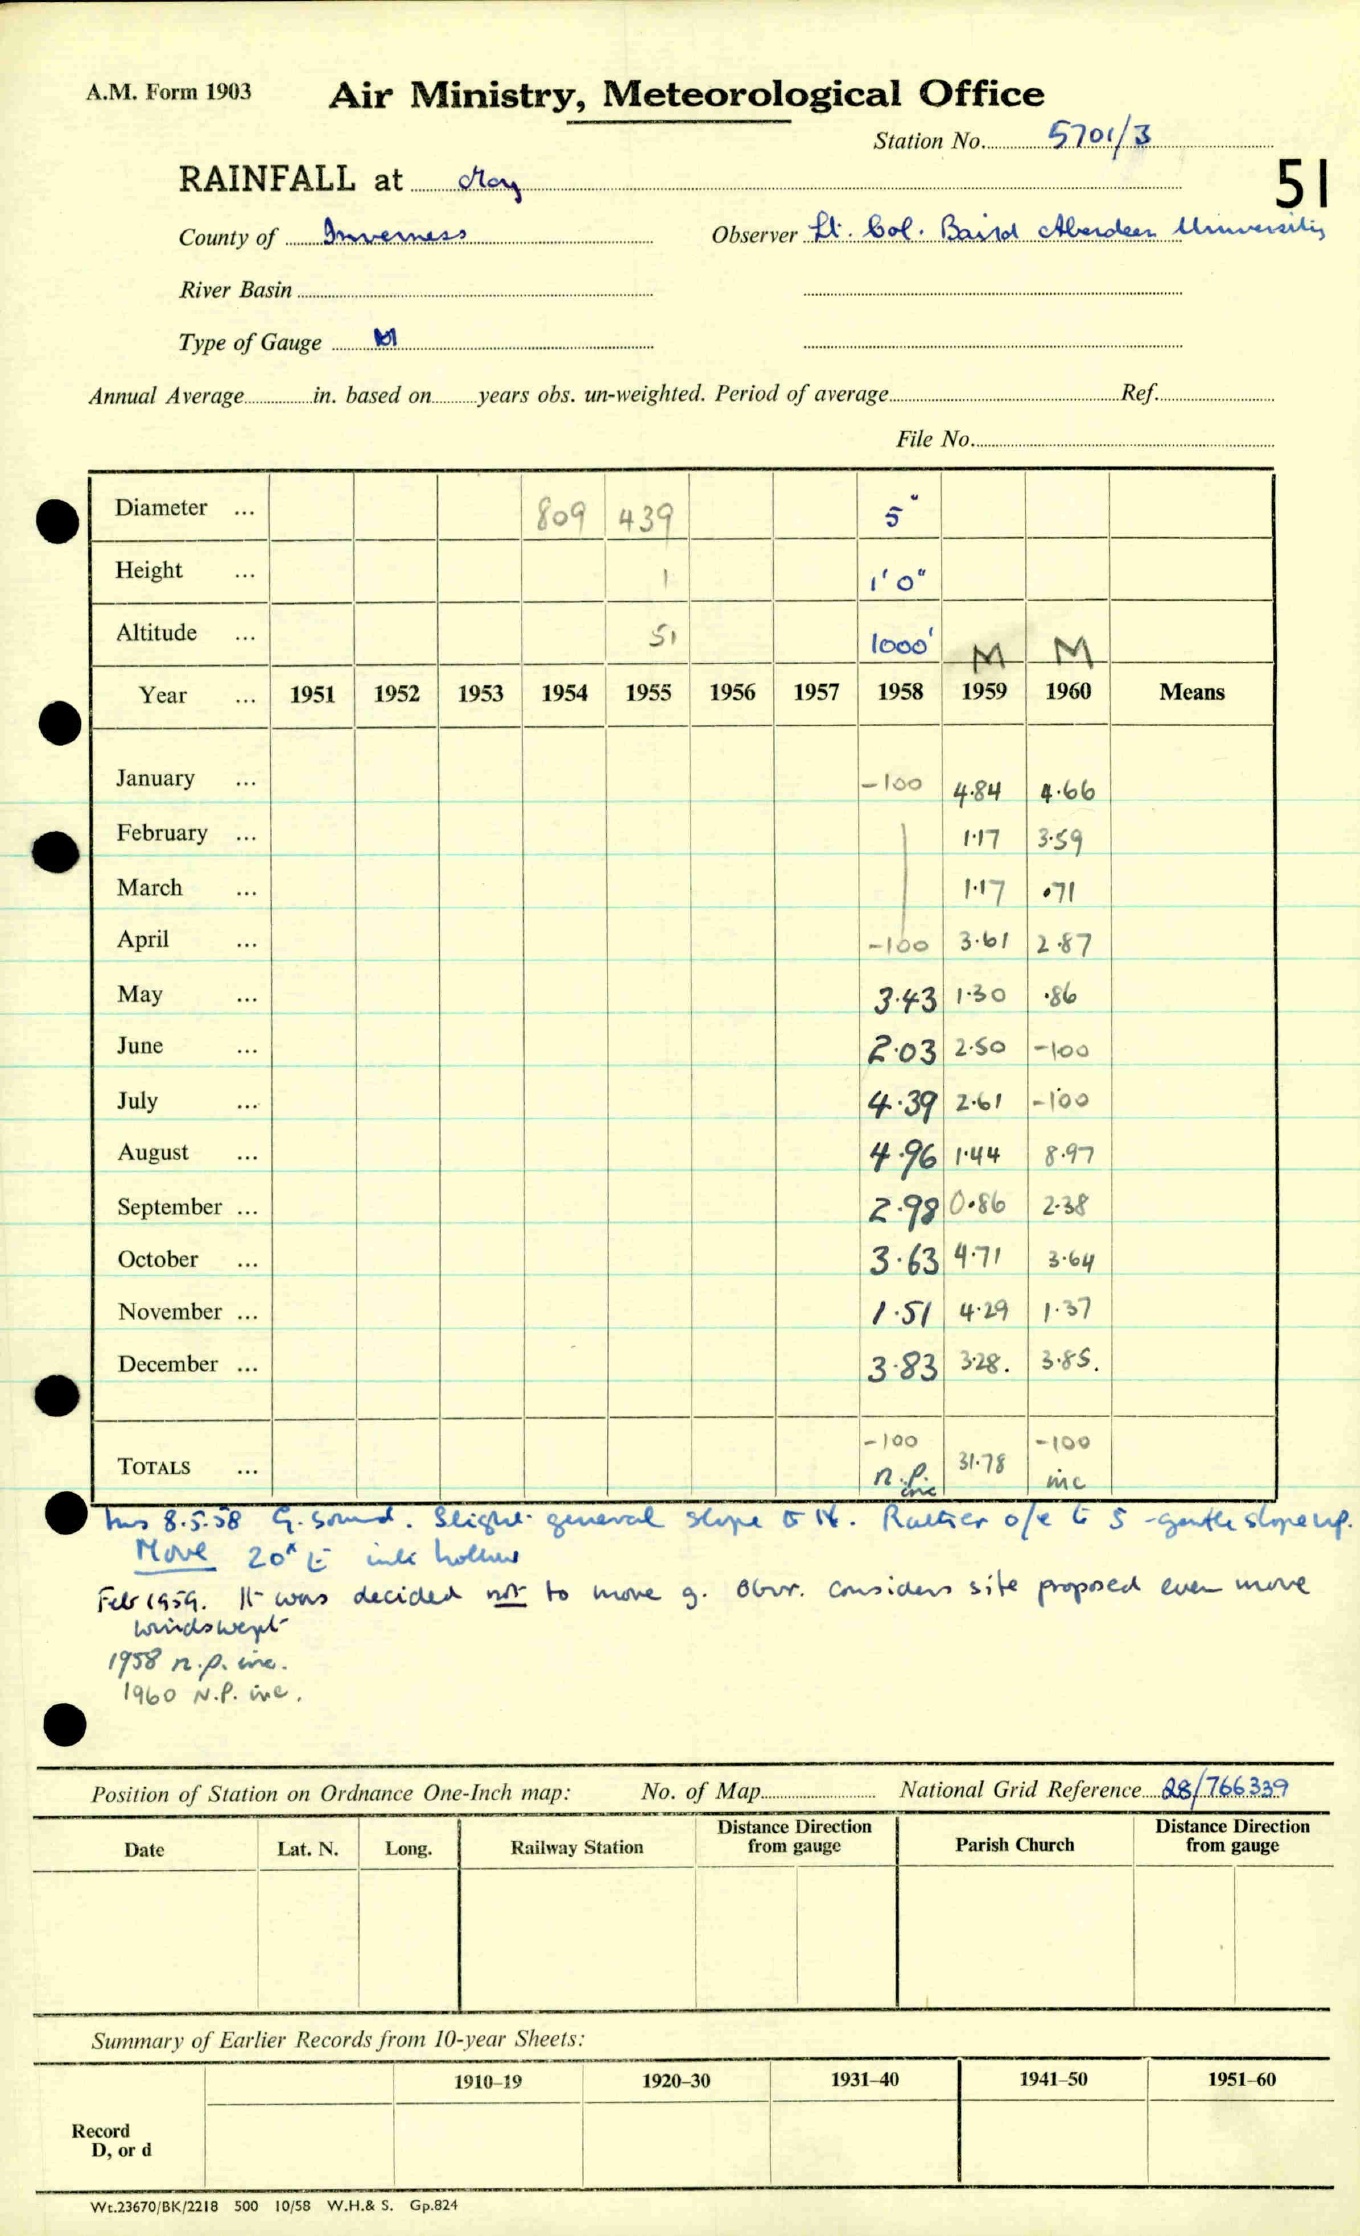 A.M. Form 1903
Air Ministry, Meteorological Office
Station No. 5701/3
51
RAINFALL at Moy
County of Inverness Observer Lt. Col. Baird Aberdeen University
River Basin
Type of Gauge M
Annual Average in. based on years obs. un-weighted. Period of average Ref.
File No.
Diameter ... 809 439 5"
Height ... 1 1' 0"
Altitude ... 51 1000' M M
Year ... 1951 1952 1953 1954 1955 1956 1957 1958 1959 1960 Means
January ... -100 4.84 4.66
February ... 1.17 3.59
March ... 1.17 .71
April ... -100 3.61 2.87
May ... 3.43 1.30 .86
June ... 2.03 2.50 -100
July ... 4.39 2.61 -100
August ... 4.96 1.44 8.97
September ... 2.98 0.86 2.38
October ... 3.63 4.71 3.64
November ... 1.51 4.29 1.37
December ... 3.83 3.28. 3.85.
TOTALS ... -100 n.p. inc 31.78 -100 inc
Ins 8.5.58 G. sound. Slight general slope to N. Rather o/e to S - gentle slope up.
Move 20x E into hollow
Feb 1959. It was decided not to move g. Obvr. considers site proposed even more
windswept
1958 n.p. inc.
1960 N.P. inc.
Position of Station on Ordnance One-Inch map: No. of Map National Grid Reference 28/766339
Date Lat. N. Long. Railway Station Distance Direction from gauge Parish Church Distance Direction from gauge
Summary of Earlier Records from 10-year Sheets:
1910–19 1920–30 1931–40 1941–50 1951–60
Record
D, or d
Wt.23670/BK/2218 500 10/58 W.H.& S. Gp.824